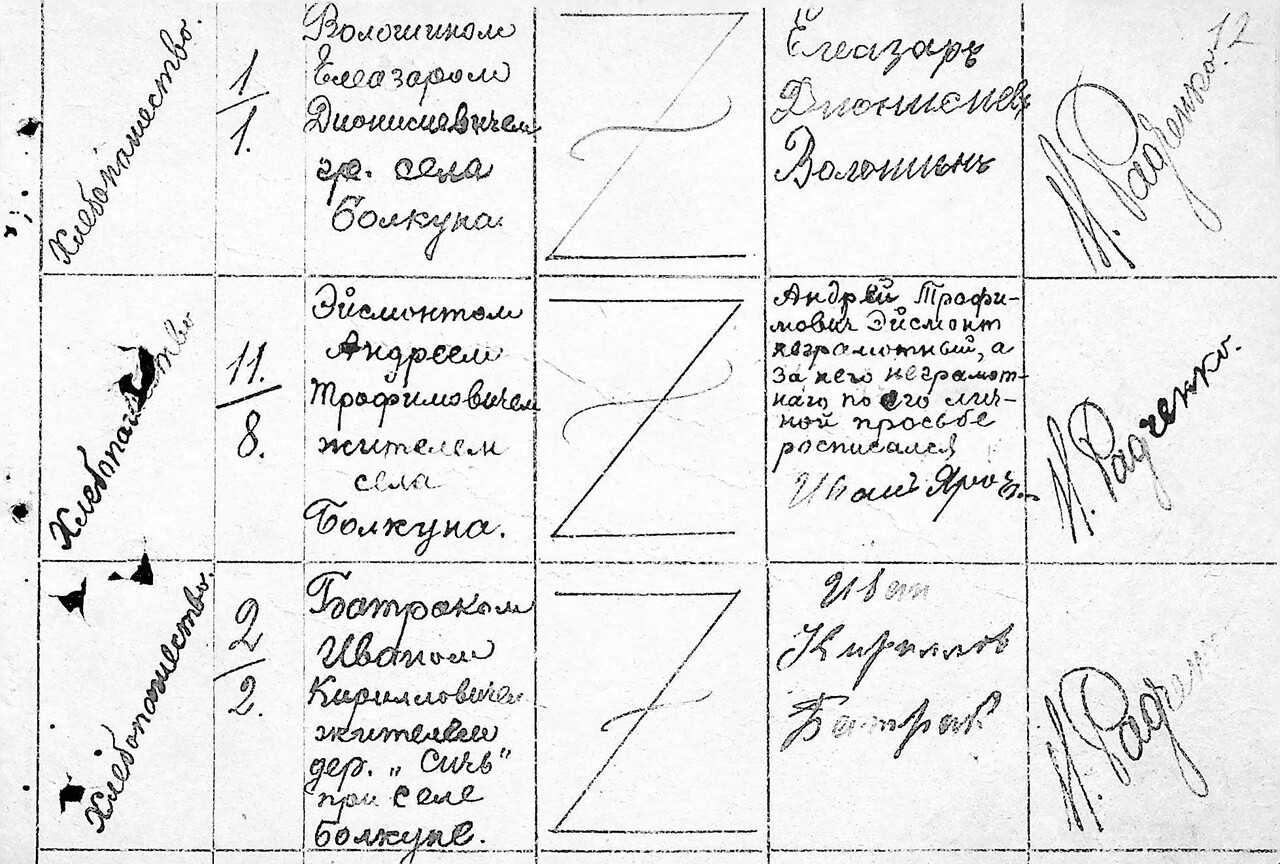 Хлебопашество.
1
1.
Волошином
Елеазаром
Дионисиевичем
гр. села
Болкуна.
Елеазарь
Дионисиев
Волошинъ
М. Радченко.
12
Хлебопашество
11.
8.
Эйсмонтом
Андреем
Трофимовичем
жителем
села
Болкуна.
Андрей Трофи-
мович Эйсмонт
неграмотный, а
за него неграмот-
наго, по его лич-
ной просьбе
росписался
Иван
М. Радченко.
Хлебопашество.
2
2.
Батраком
Иваном
Кирилловичем
жителем
дер. „Сичь"
при селе
Болкуне.
Иван
Кириллов
Батрак
М. Радченко